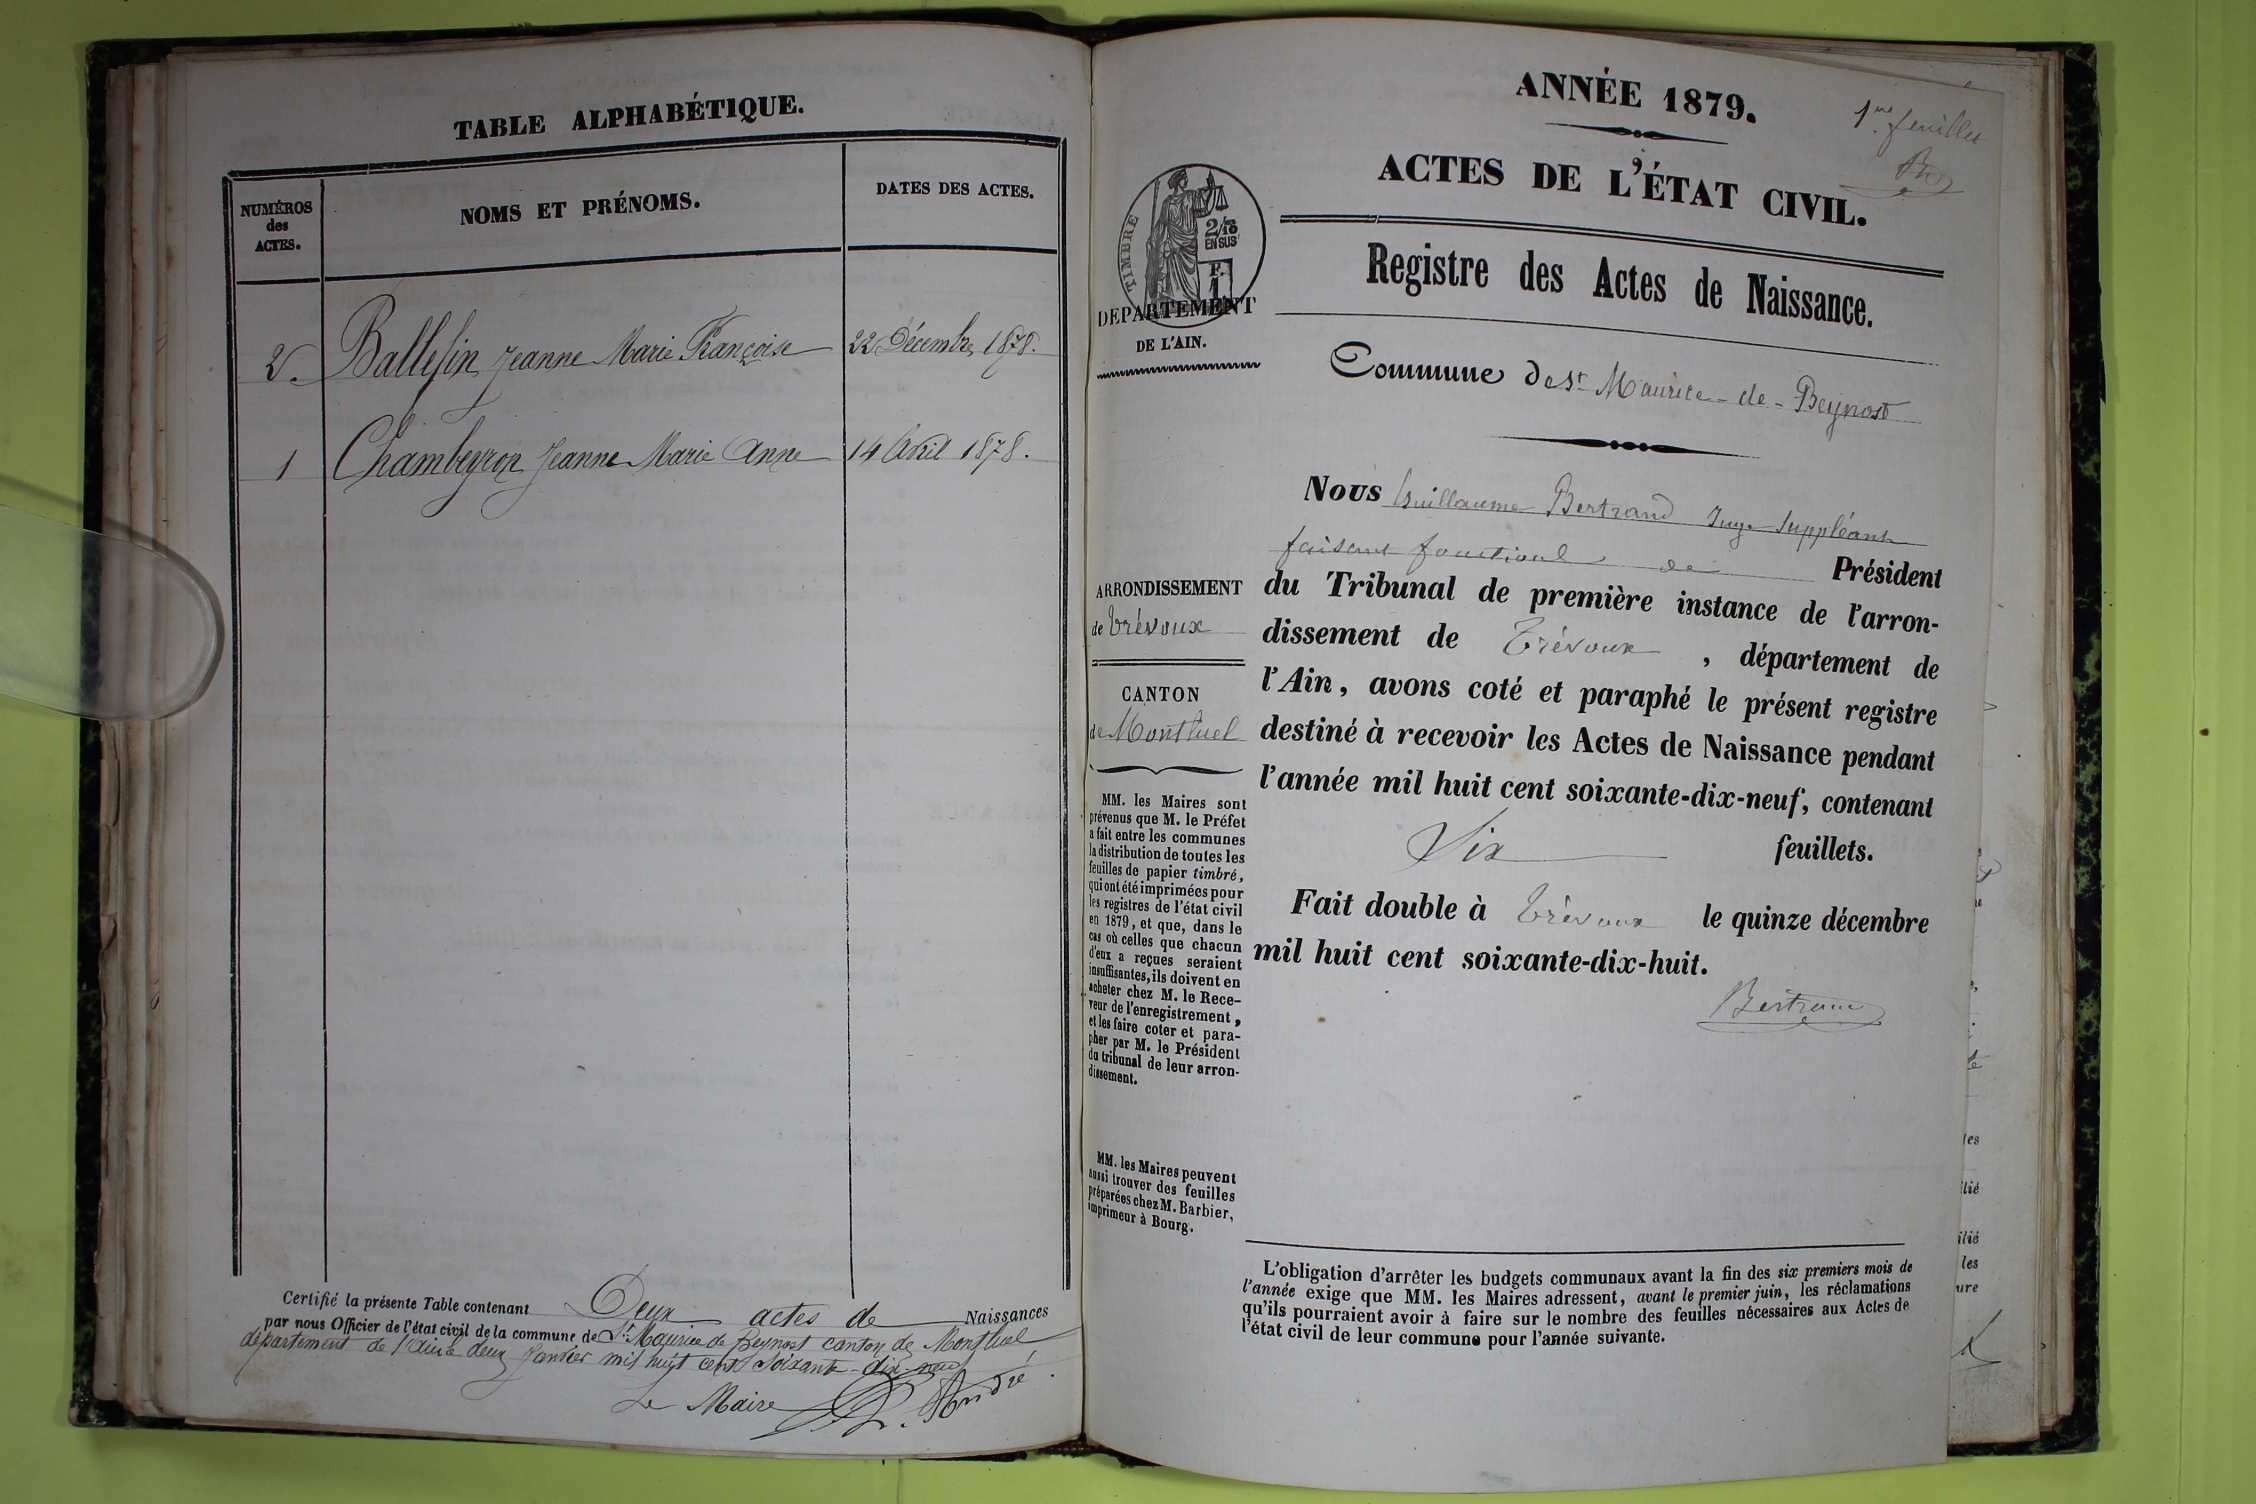 TABLE ALPHABÉTIQUE.
NUMÉROS
des
ACTES.
NOMS ET PRÉNOMS.
DATES DES ACTES.
2. Ballefin Jeanne Marie Françoise 22 Décembre 1878.
1 Chambeyron Jeanne Marie Anne 14 Avril 1878.
Certifié la présente Table contenant Deux actes de Naissances
par nous Officier de l'état civil de la commune de St Maurice de Beynost canton de Montluel
département de l'ain le deux Janvier mil huit cent soixante-dix-neuf
Le Maire
André
ANNÉE 1879.
1re feuillet
ACTES DE L'ÉTAT CIVIL.
Registre des Actes de Naissance.
TIMBRE
2/10
EN SUS
F.
1
DEPARTEMENT
DE L'AIN.
Commune de St Maurice-de-Beynost
ARRONDISSEMENT
de Trévoux
CANTON
de Montluel
MM. les Maires sont
prévenus que M. le Préfet
a fait entre les communes
la distribution de toutes les
feuilles de papier timbré,
qui ont été imprimées pour
les registres de l'état civil
en 1879, et que, dans le
cas où celles que chacun
d'eux a reçues seraient
insuffisantes, ils doivent en
acheter chez M. le Rece-
veur de l'enregistrement,
et les faire coter et para-
pher par M. le Président
du tribunal de leur arron-
dissement.
MM. les Maires peuvent
aussi trouver des feuilles
préparées chez M. Barbier,
imprimeur à Bourg.
Nous Guillaume Bertrand Juge Suppléant
faisant fonctions de Président
du Tribunal de première instance de l'arron-
dissement de Trévoux, département de
l'Ain, avons coté et paraphé le présent registre
destiné à recevoir les Actes de Naissance pendant
l'année mil huit cent soixante-dix-neuf, contenant
Six feuillets.
Fait double à Trévoux le quinze décembre
mil huit cent soixante-dix-huit.
Bertrand
L'obligation d'arrêter les budgets communaux avant la fin des six premiers mois de
l'année exige que MM. les Maires adressent, avant le premier juin, les réclamations
qu'ils pourraient avoir à faire sur le nombre des feuilles nécessaires aux Actes de
l'état civil de leur commune pour l'année suivante.